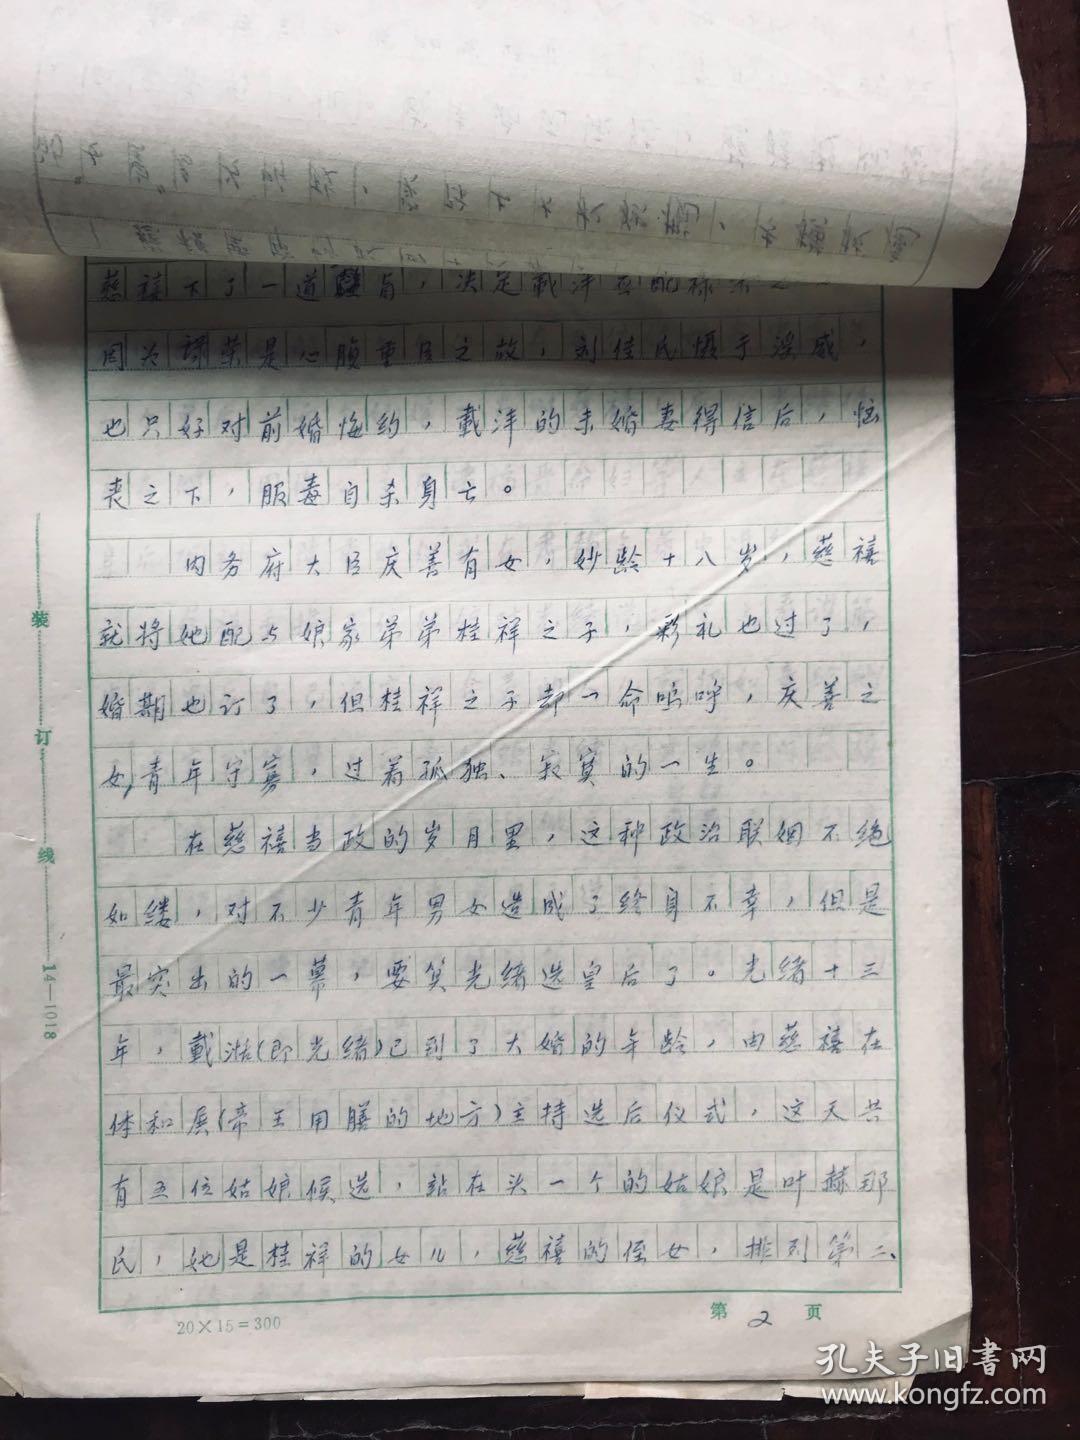 慈禧下了一道懿旨，决定载沣匹配禄
因为禄荣是心腹重臣之故，刘佳氏慑于淫威，
也只好对前婚悔约，载沣的未婚妻得信后，恼
丧之下，服毒自杀身亡。
内务府大臣庆善有女，妙龄十八岁，慈禧
就将她配与娘家弟弟桂祥之子，彩礼也过了，
婚期也订了，但桂祥之子却一命呜呼，庆善之
女，青年守寡，过着孤独、寂寞的一生。
在慈禧当政的岁月里，这种政治联姻不绝
如缕，对不少青年男女造成了终身不幸，但是
最突出的一幕，要算光绪选皇后了。光绪十三
年，载湉（即光绪）已到了大婚的年龄，由慈禧在
体和展（帝王用膳的地方）主持选后仪式，这天共
有五位姑娘候选，站在头一个的姑娘是叶赫那
氏，她是桂祥的女儿，慈禧的侄女，排列第二、
20×15=300
第 2 页
装
订
线
14—1018
孔夫子旧书网
www.kongfz.com